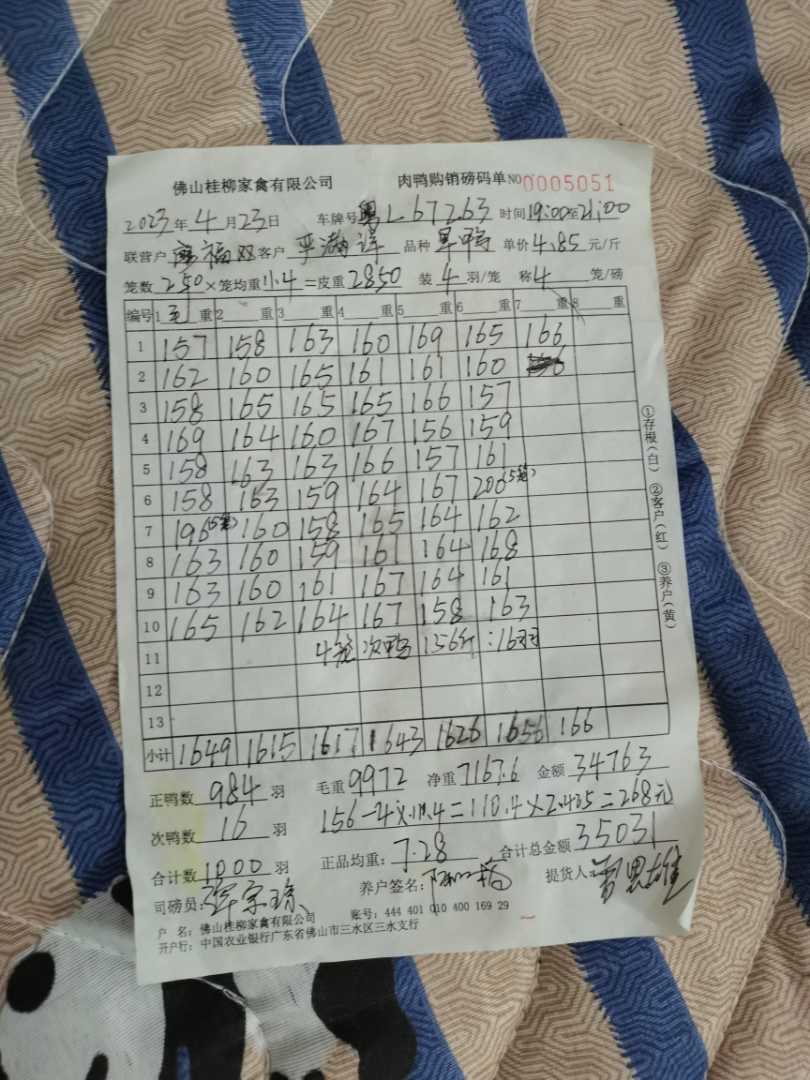 佛山桂柳家禽有限公司 肉鸭购销磅码单 NO 0005051
2023年4月23日 车牌号粤L67263 时间19:00至21:00
联营户 福双 客户 品种 旱鸭 单价4.85元/斤
笼数250×笼均重11.4=皮重2850 装4羽/笼 称4笼/磅
编号 1毛重 2 重 3 重 4 重 5 重 6 重 7 重 8 重
1 157 158 163 160 169 165 166
2 162 160 165 161 161 160
3 158 165 165 165 166 157
4 169 164 160 167 156 159
5 158 163 163 166 157 161
6 158 163 159 164 167 200(5笼)
7 196(5笼) 160 158 165 164 162
8 163 160 159 161 164 168
9 163 160 161 167 164 161
10 165 162 164 167 158 163
11 4笼 次鸭 156斤:16羽
12
13
小计 1649 1615 1617 1643 1626 1656 166
正鸭数 984 羽 毛重9972 净重7167.6 金额34763
次鸭数 16 羽 156-4×11.4=110.4×2.425=268元
合计数 1000 羽 正品均重:7.28 合计总金额35031
司磅员: 养户签名: 提货人
户 名: 佛山桂柳家禽有限公司 账号: 444 401 010 400 169 29
开户行: 中国农业银行广东省佛山市三水区三水支行
①存根(白) ②客户(红) ③养户(黄)